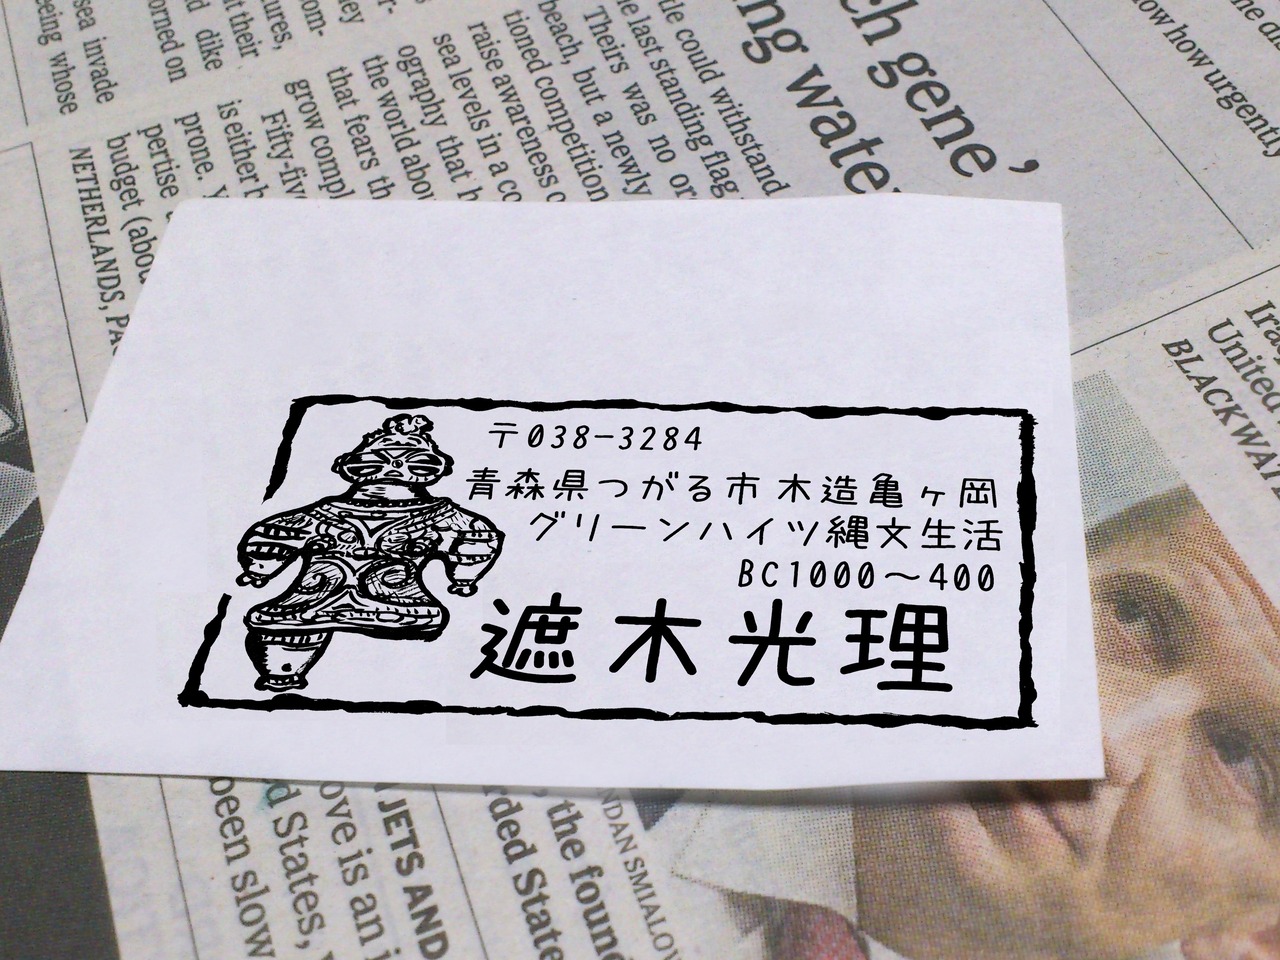 sea invade
being whose
orned on
d dike
t their
ures,
om-
ney
prone.
pertise
budget (abou
NETHERLANDS, PA
is either b
Fifty-five
grow compl
that fears th
the world abou
ography that h
sea levels in a co
raise awareness o
tioned competition
beach, but a newly
Theirs was no or
e last standing flag
tle could withstand
ch gene’
ng wate
now how urgently
ne di
Iraq
United
BLACKWATE
〒038-3284
青森県つがる市木造亀ヶ岡
グリーンハイツ縄文生活
BC1000〜400
遮木光理
been slow
d States,
ove is an i
JETS AND
rded State
, the found
NDAN SMIALOW